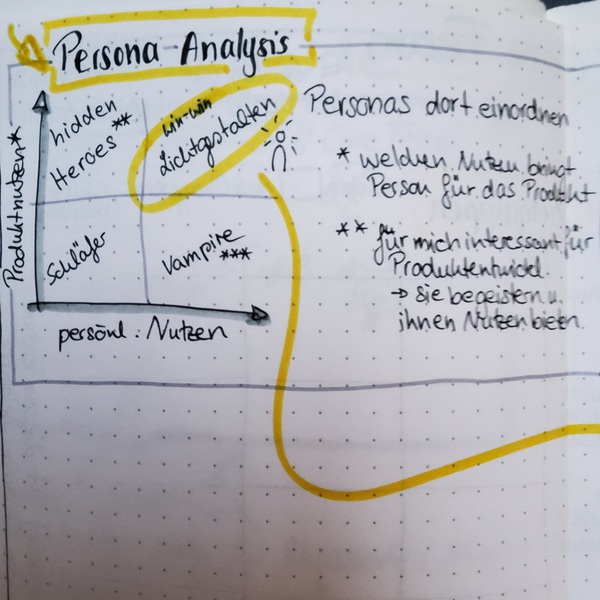 Persona Analysis
Produktnutzen*
hidden
Heroes**
win-win
Lichtgestalten
Schläfer
Vampire
***
persönl. Nutzen
Personas dort einordnen
* welchen Nutzen bringt
Person für das Produkt
** für mich interessant für
Produktentwickl.
→ sie begeistern u.
ihnen Nutzen bieten.